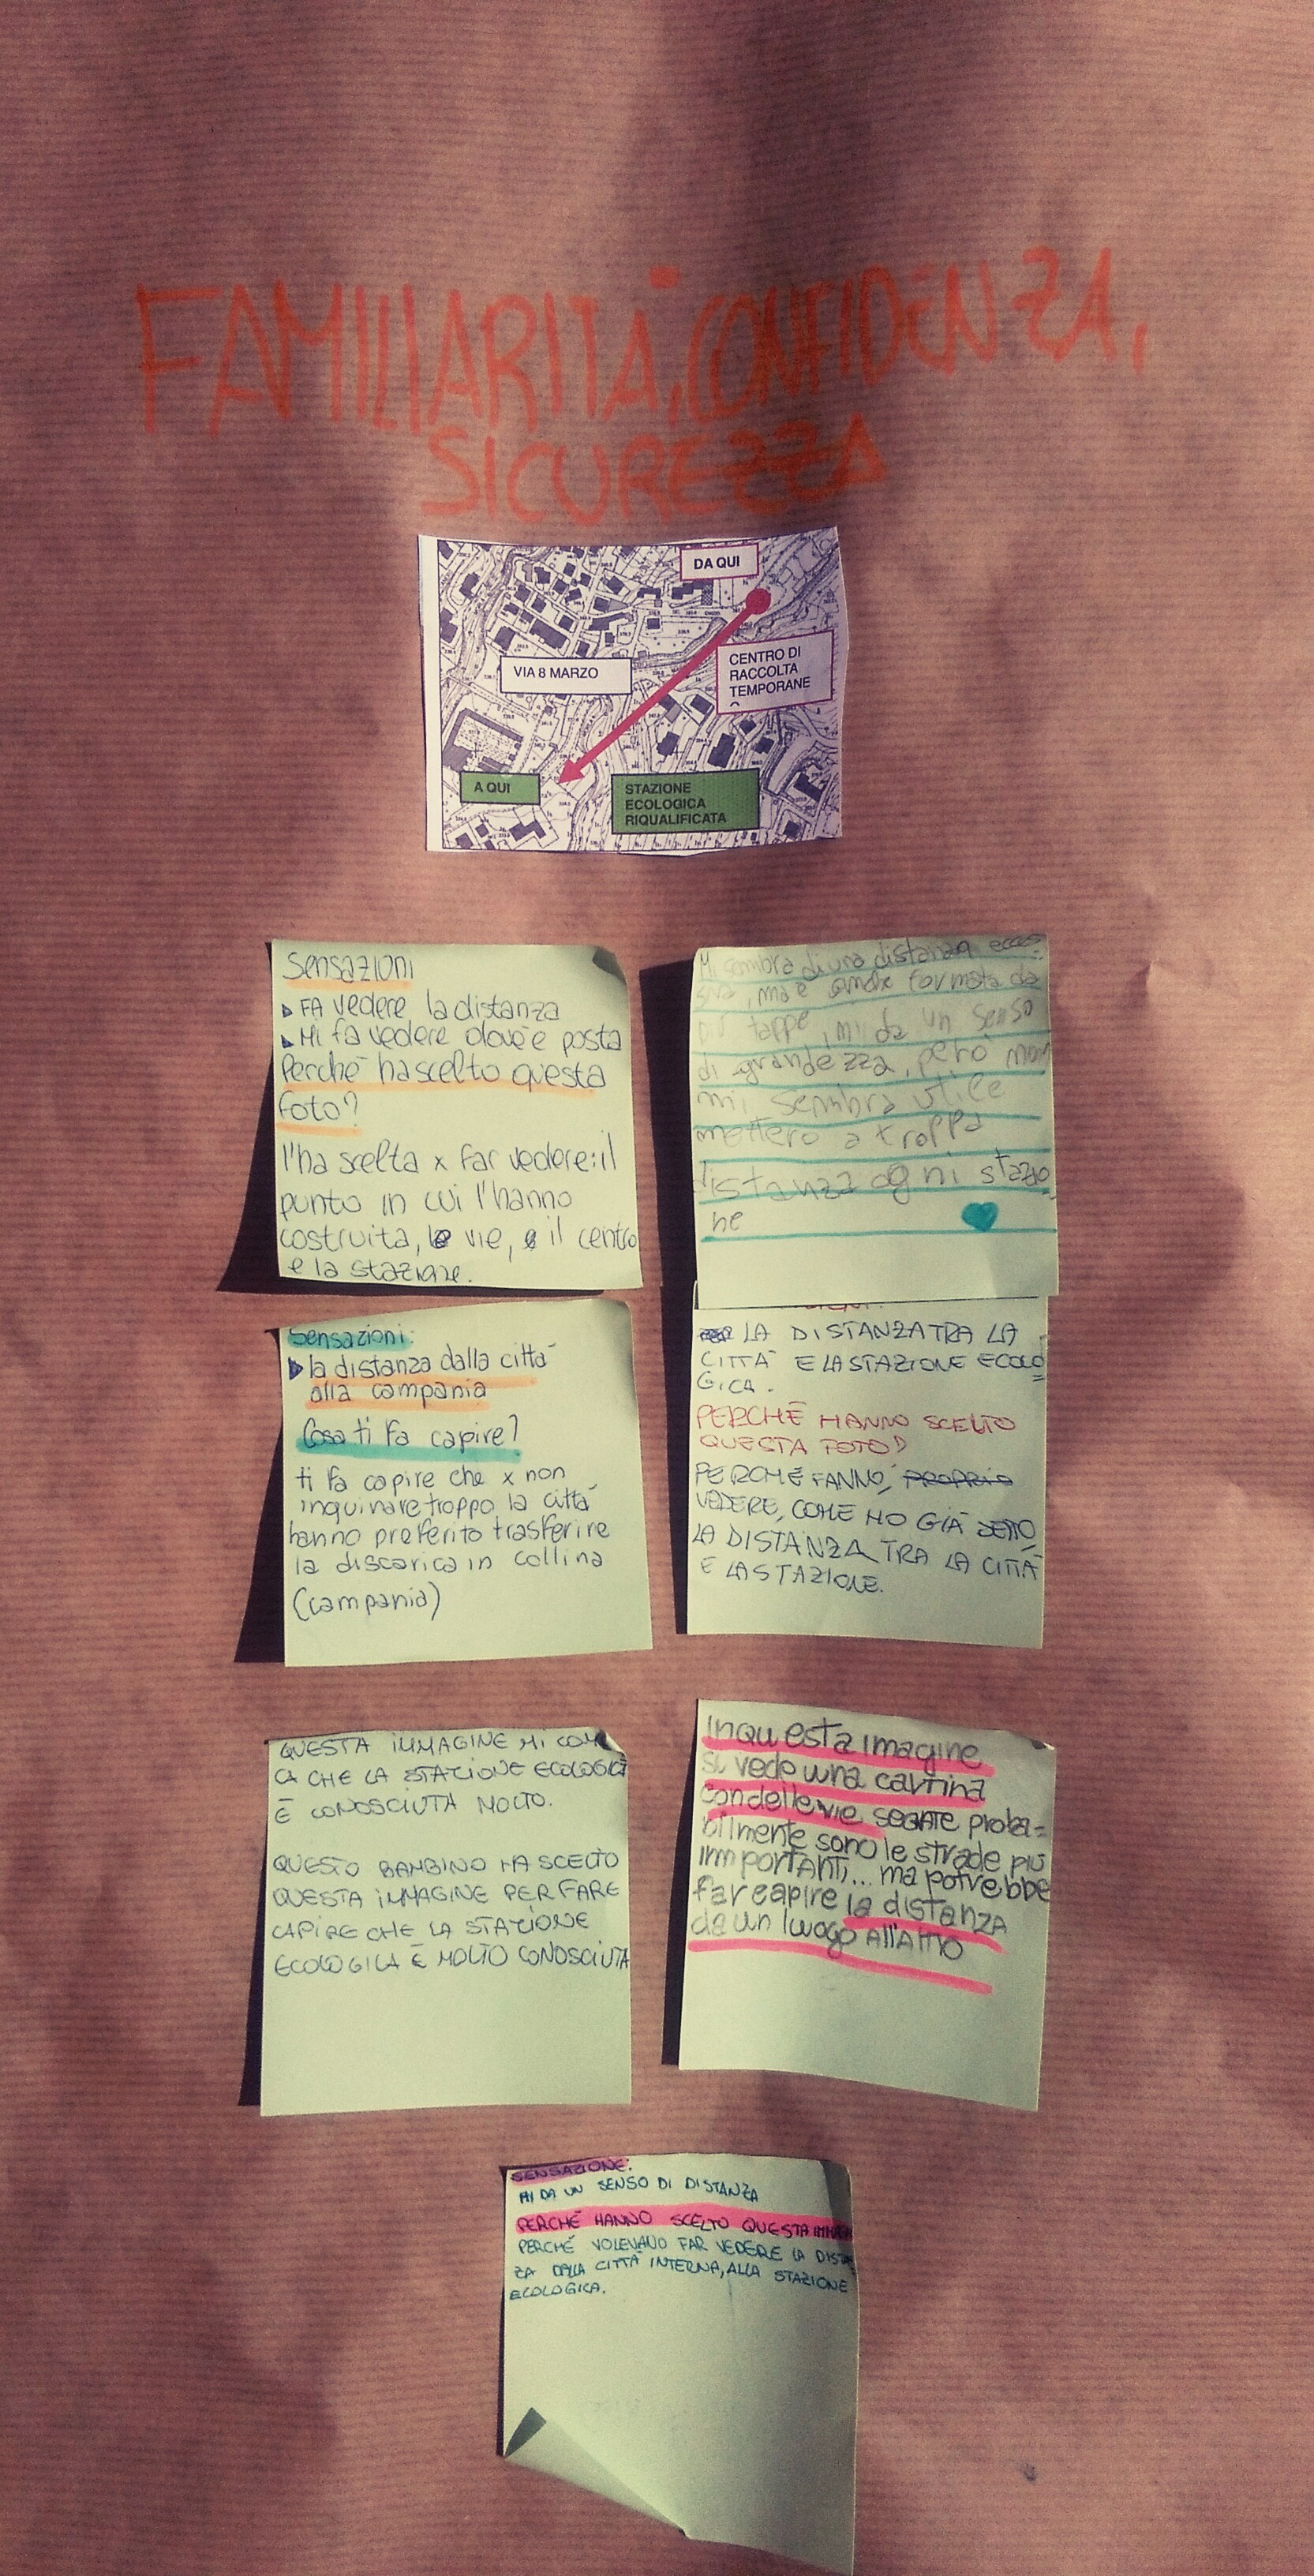 FAMILIARITÀ, CONFIDENZA,
SICUREZZA
DA QUI
VIA 8 MARZO
CENTRO DI
RACCOLTA
TEMPORANE
A QUI
STAZIONE
ECOLOGICA
RIQUALIFICATA
Sensazioni
FA vedere la distanza
Mi fa vedere dov'è posta
Perché ha scelto questa
foto?
l'ha scelta x far vedere: il
punto in cui l'hanno
costruita, le vie, e il centro
e la stazione.
Mi sembra di una distanza ecces
siva, ma è anche formata da
più tappe, mi da un senso
di grandezza, però non
mi sembra utile
mettero a troppa
distanza ogni stazio
ne
Sensazioni:
la distanza dalla città
alla campania
Cosa ti fa capire?
ti fa capire che x non
inquinare troppo la città
hanno preferito trasferire
la discarica in collina
(campania)
LA DISTANZA TRA LA
CITTÀ E LA STAZIONE ECOLO
GICA.
PERCHÉ HANNO SCELTO
QUESTA FOTO?
PERCHÉ FANNO, PROPRIO
VEDERE, COME HO GIÀ DETTO,
LA DISTANZA TRA LA CITTÀ
E LA STAZIONE.
QUESTA IMMAGINE MI
CA CHE LA STAZIONE ECOLOGICA
È CONOSCIUTA MOLTO.
QUESTO BAMBINO HA SCELTO
QUESTA IMMAGINE PER FARE
CAPIRE CHE LA STAZIONE
ECOLOGICA È MOLTO CONOSCIUTA
In questa imagine
si vede una cartina
con delle vie segnate proba=
bilmente sono le strade più
importanti... ma potrebbe
far capire la distanza
da un luogo all'altro
SENSAZIONE:
MI DA UN SENSO DI DISTANZA
PERCHÉ HANNO SCELTO QUESTA
PERCHÉ VOLEVANO FAR VEDERE LA DISTAN
ZA DALLA CITTÀ INTERNA, ALLA STAZIONE
ECOLOGICA.